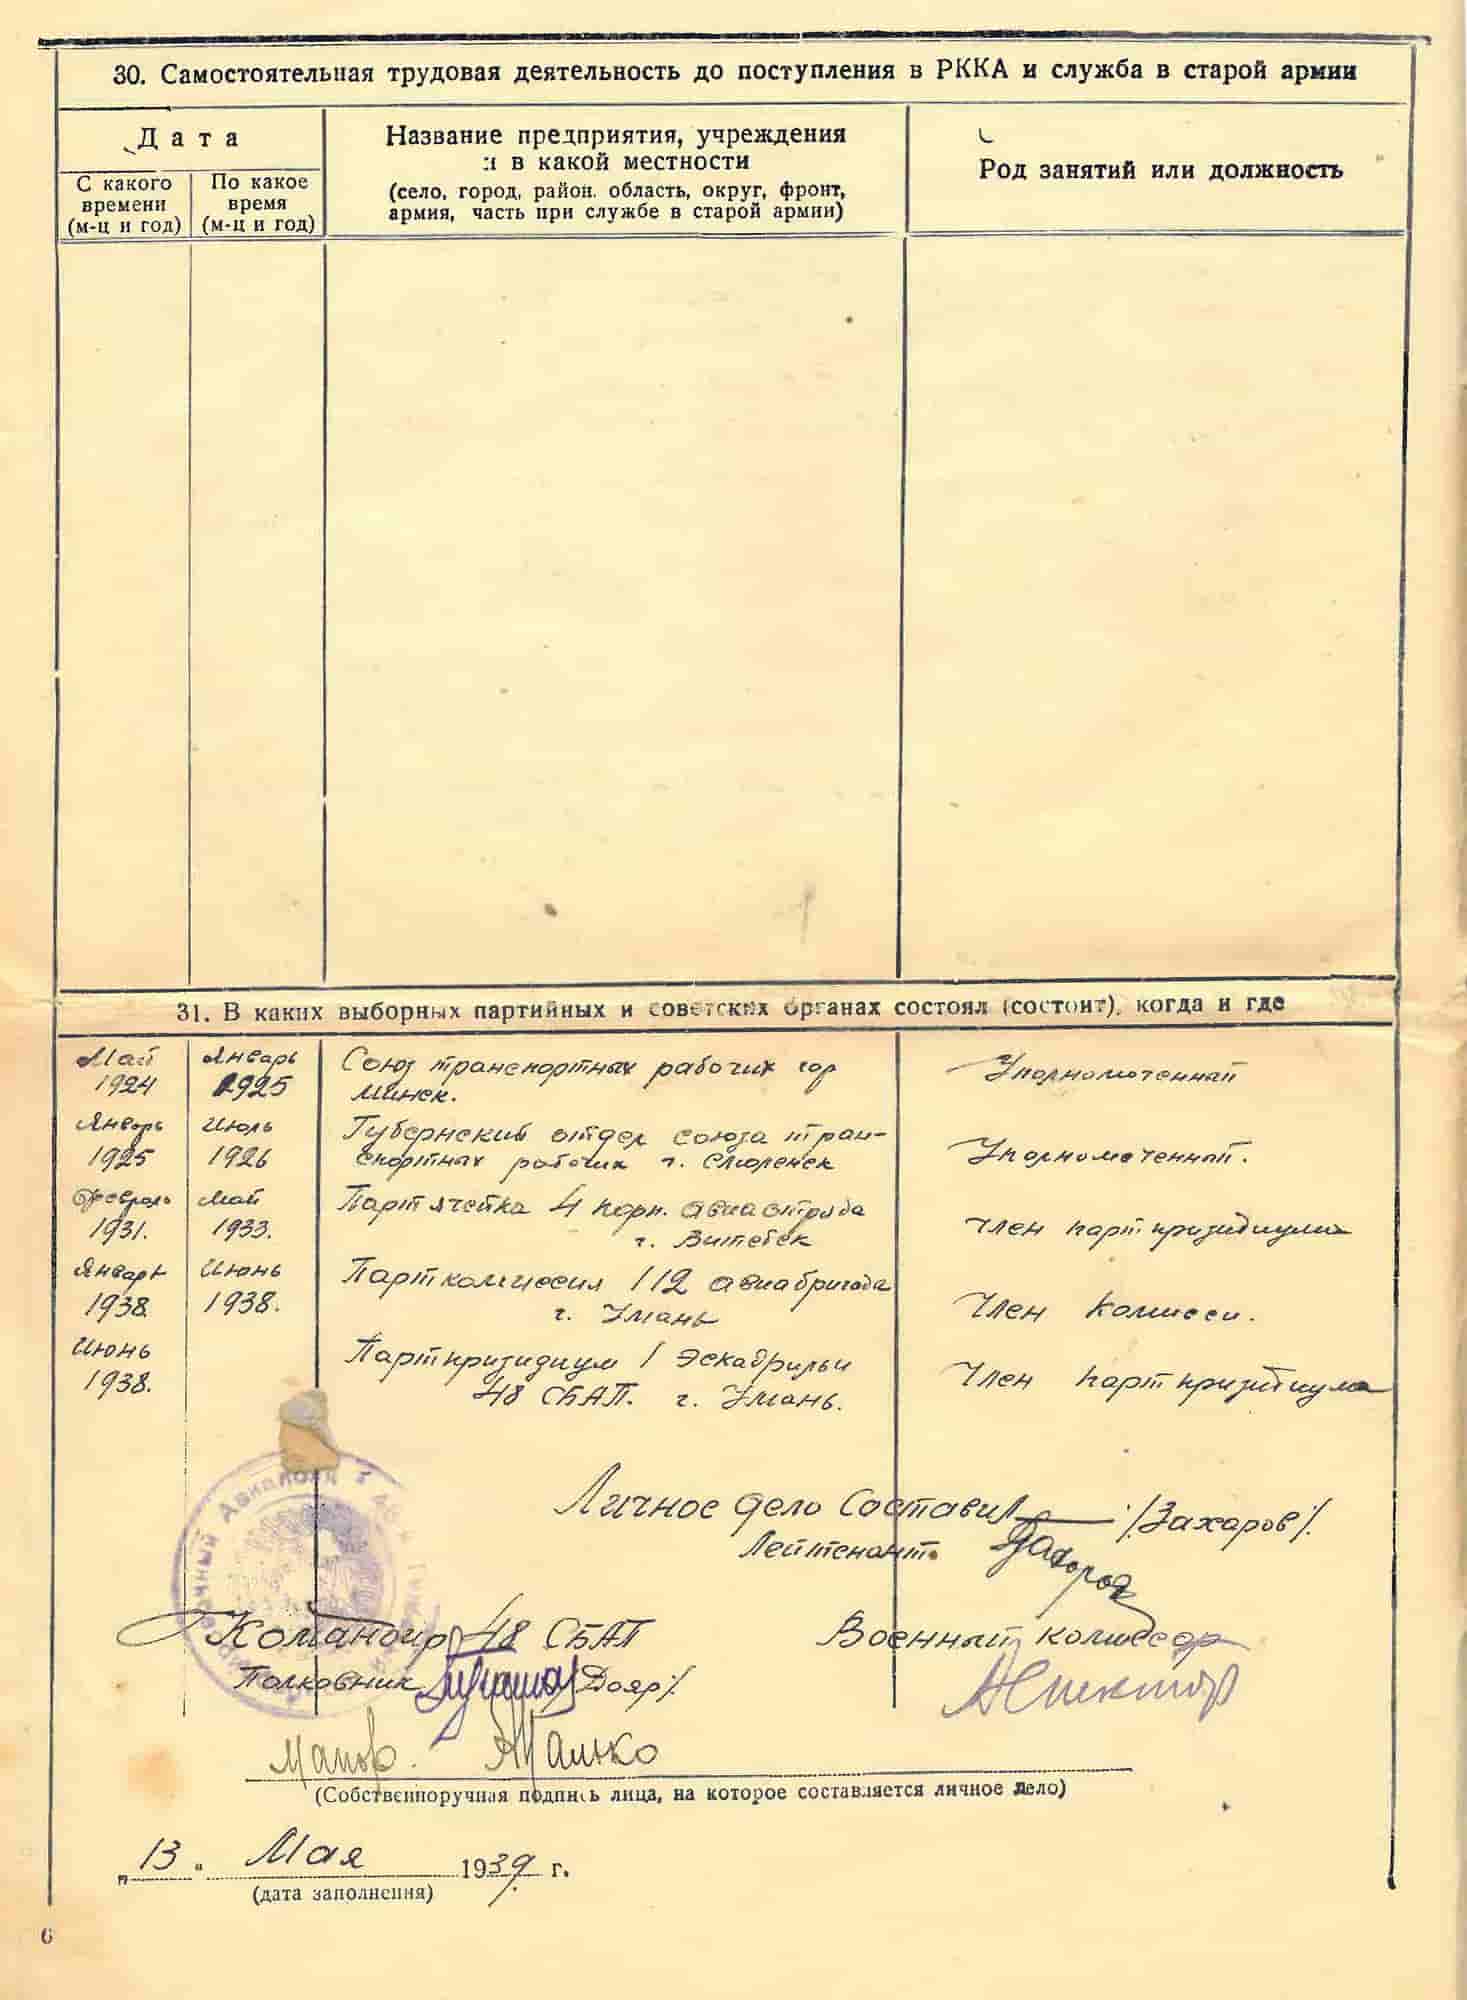 30. Самостоятельная трудовая деятельность до поступления в РККА и служба в старой армии
Дата
С какого
времени
(м-ц и год)
По какое
время
(м-ц и год)
Название предприятия, учреждения
и в какой местности
(село, город, район. область, округ, фронт,
армия, часть при службе в старой армии)
Род занятий или должность
31. В каких выборных партийных и советских органах состоял (состоит), когда и где
Май Январь Союз транспортных рабочих гор Уполномоченный
1924 1925 Минск.
Январь Июль Губернский отдел союза тран-
1925 1926 спортных рабочих г. Смоленск Уполномоченный.
Февраль Май Партячейка 4 корп. авиаотряда
1931. 1933. г. Витебск Член партпризидиума
Январь Июнь Парткомиссия 112 авиабригада
1938. 1938. г. Умань Член комисси.
Июнь Партпризидиум 1 Эскадрильи
1938. 48 СБАП. г. Умань. Член партпризидиума
Личное дело составил /Захаров/.
Лейтенант Захаров
Командир 48 СБАП Военный комиссар
Полковник /Дояр/.
Майор.
(Собственноручная подпись лица, на которое составляется личное дело)
„13“ Мая 1939 г.
(дата заполнения)
6